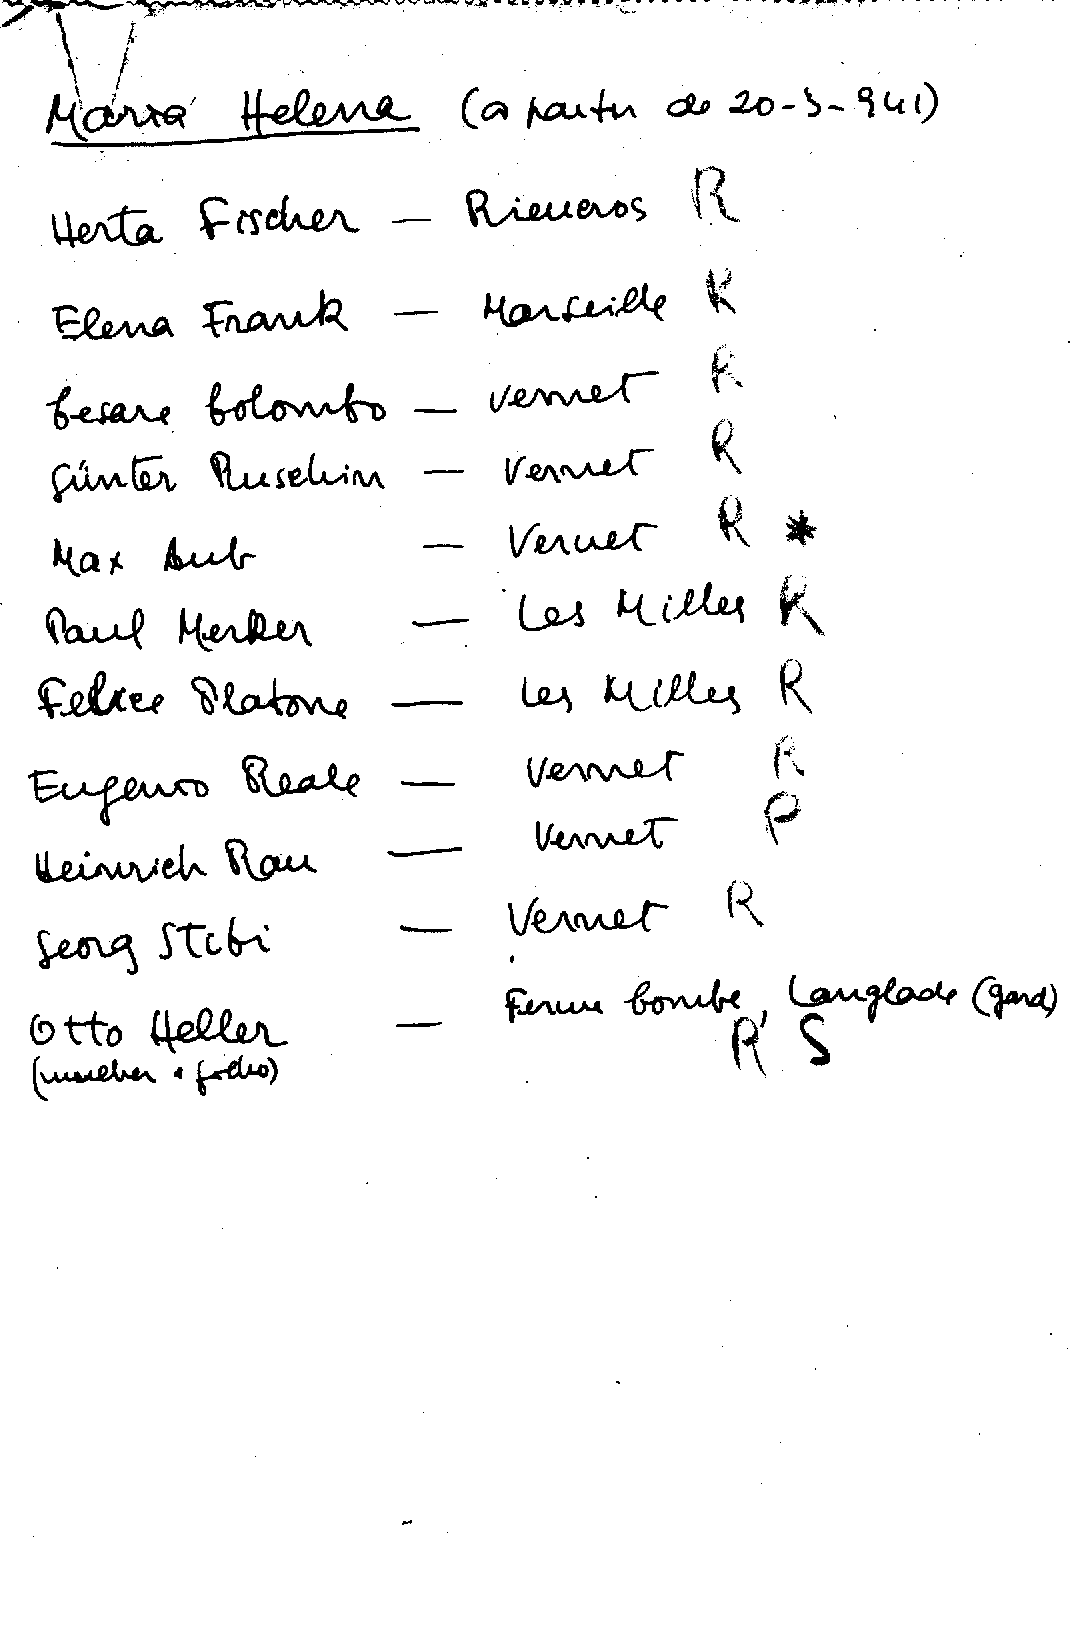 Maria Helena (a partir de 20-3-941)
Herta Fischer — Rieucros R
Elena Frank — Marseille R
Cesare Colombo — Vernet R
Günter Ruschin — Vernet R
Max Aub — Vernet R *
Paul Merker — Les Milles R
Felice Platone — Les Milles R
Eugenio Reale — Vernet R
Heinrich Rau — Vernet P
Georg Stibi — Vernet R
Otto Heller — Ferme Combe, Langlade (Gard)
(mulher e filho) R S